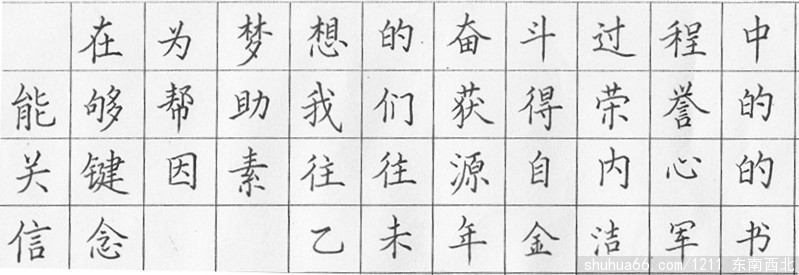 在为梦想的奋斗过程中
能够帮助我们获得荣誉的
关键因素往往源自内心的
信念 乙未年金洁军书
shuhua66.com/1211 东南西北